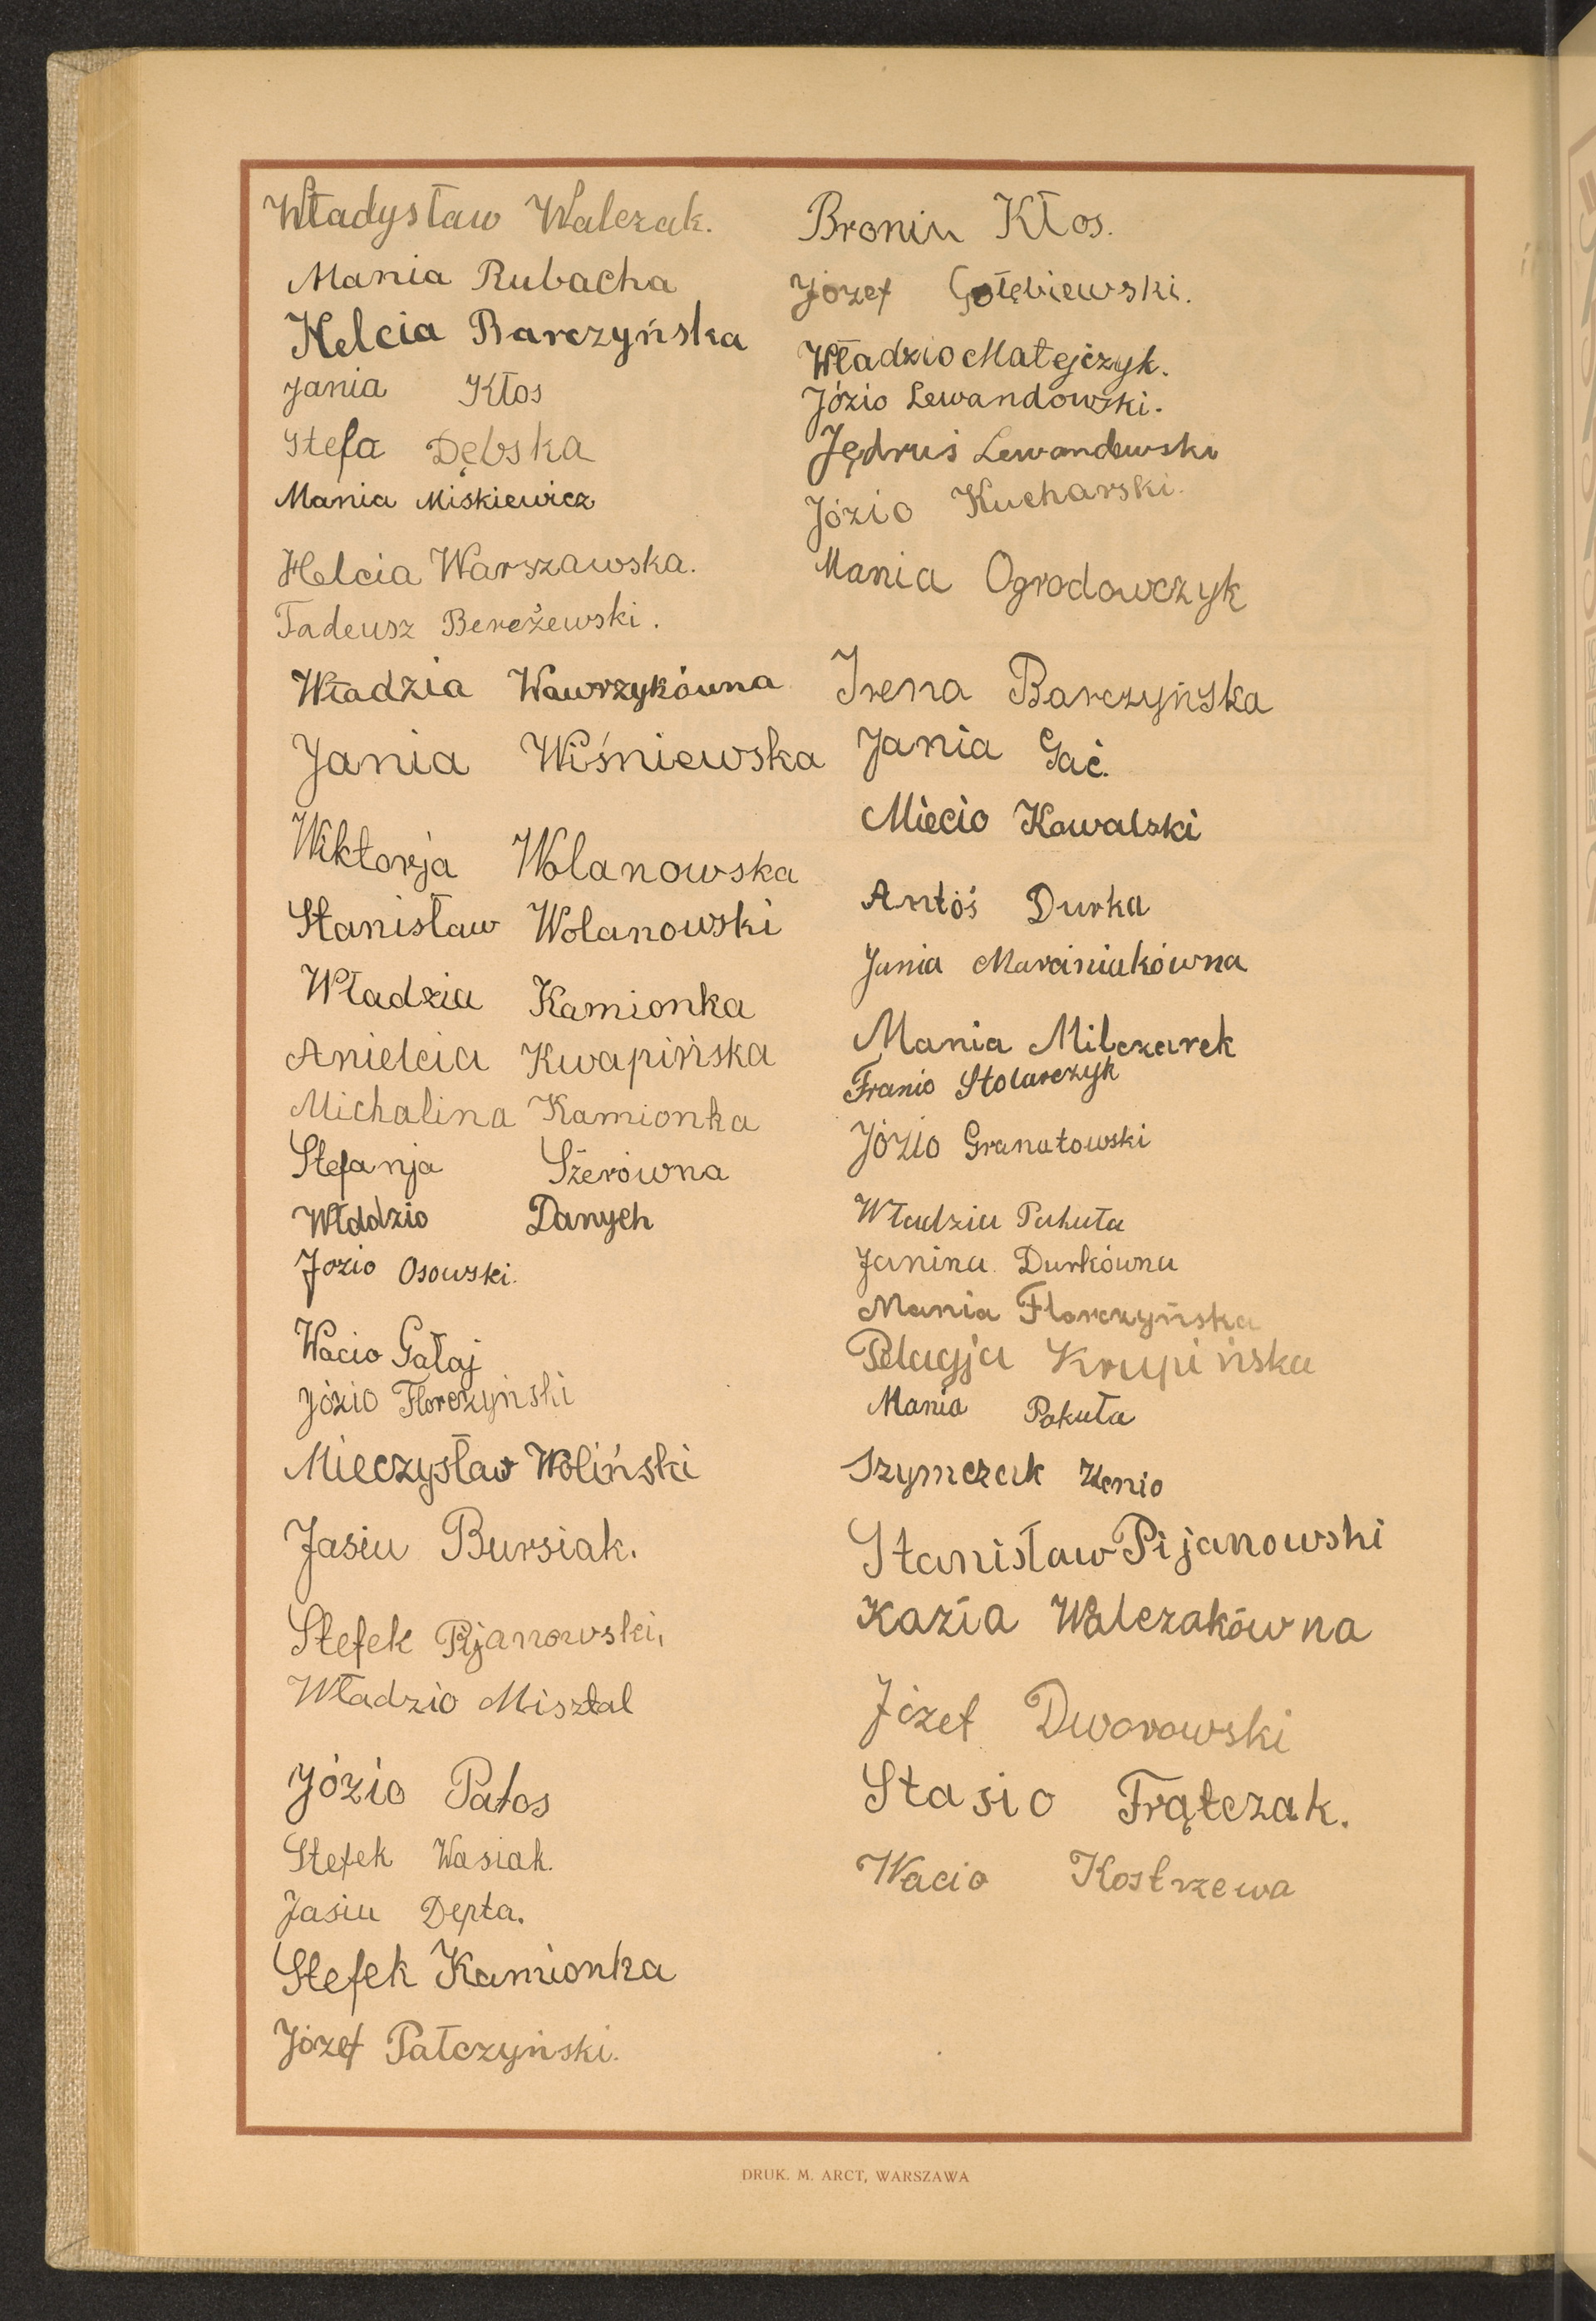 Władysław Walczak.
Mania Rubacha
Helcia Barczyńska
Jania Kłos
Stefa Dębska
Mania Miskiewicz
Helcia Warszawska.
Tadeusz Bereżewski.
Władzia Wawrzykówna
Jania Wiśniewska
Wiktorja Wolanowska
Stanisław Wolanowski
Władzia Kamionka
Anielcia Kwapińska
Michalina Kamionka
Stefanja Szerówna
Włddzio Danych
Jozio Osowski.
Wacio Gałaj
Józio Florczyński
Mieczysław Woliński
Jasiu Bursiak.
Stefek Pijanowski,
Władzio Misztal
Józio Patos
Stefek Wasiak.
Jasiu Depta.
Stefek Kamionka
Józef Pałczyński.
Broniu Kłos.
Józef Gołębiewski.
Władzio Matejczyk.
Józio Lewandowski.
Jędruś Lewandowski
Józio Kucharski.
Mania Ogrodowczyk
Irena Barczyńska
Jania Gać.
Miecio Kowalski
Antoś Durka
Jania Marciniakówna
Mania Milczarek
Franio Stolarczyk
Józio Granatowski
Władziu Pakuła
Janina Durkówna
Mania Florczyńska
Pelagja Krupińska
Mania Pakuła
Szymczak Zenio
Stanisław Pijanowski
Kazia Walczakówna
Józef Dworowski
Stasio Frątczak.
Wacio Kostrzewa
DRUK. M. ARCT, WARSZAWA